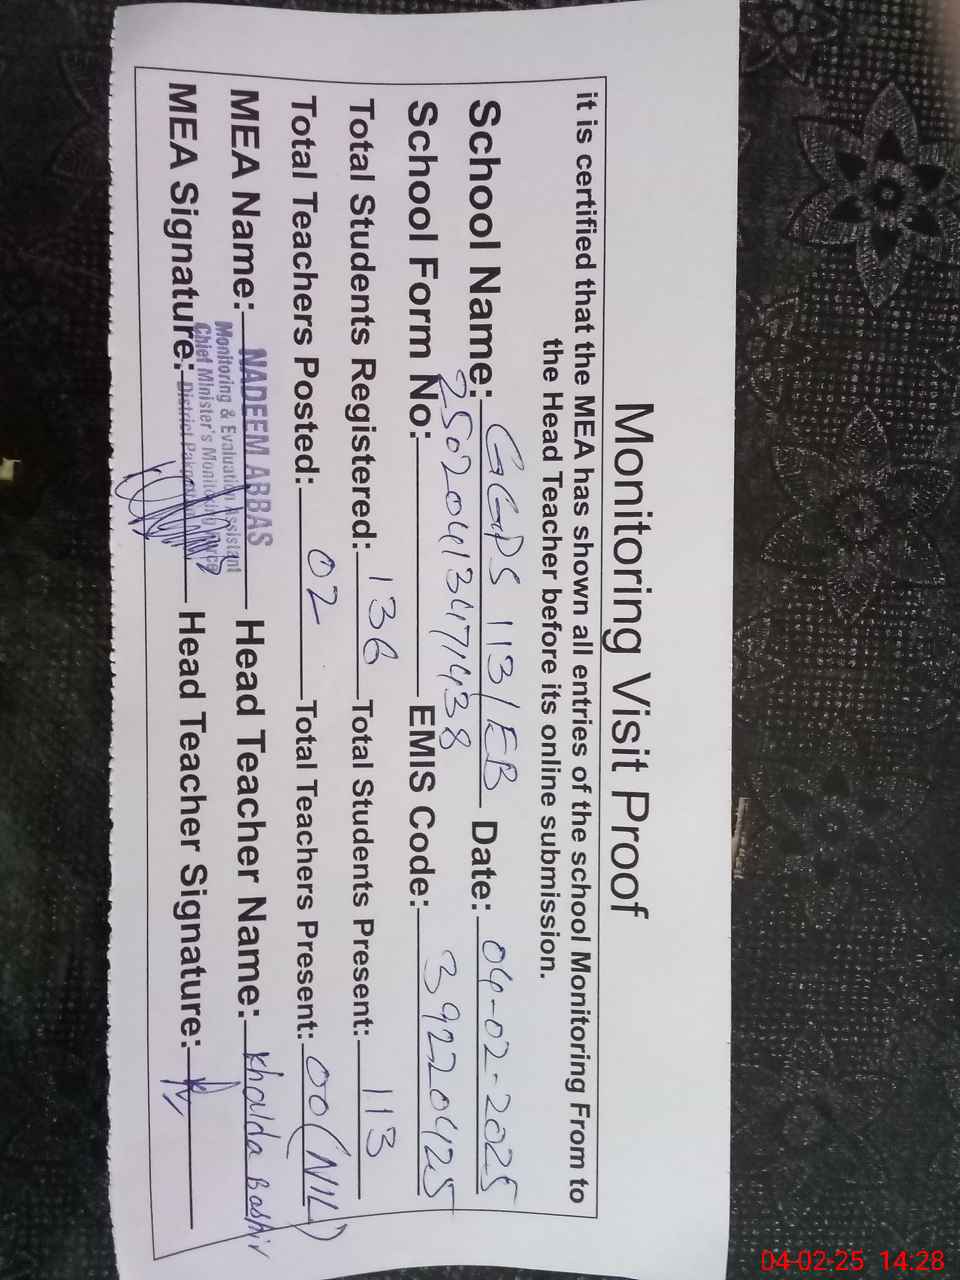 Monitoring Visit Proof
it is certified that the MEA has shown all entries of the school Monitoring From to
the Head Teacher before its online submission.
School Name: GGPS 113/EB Date: 04-02-2025
School Form No: 25020413471438 EMIS Code: 39220425
Total Students Registered: 136 Total Students Present: 113
Total Teachers Posted: 02 Total Teachers Present: 00 (NIL)
MEA Name: NADEEM ABBAS Head Teacher Name: Khalda Bashir
Monitoring & Evaluation Assistant
Chief Minister's Monitoring
District
MEA Signature: Head Teacher Signature:
04-02-25 14:28